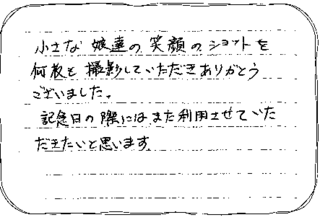 小さな娘達の笑顔のショットを
何枚も撮影していただきありがとう
ございました。
記念日の際にはまた利用させていた
だきたいと思います